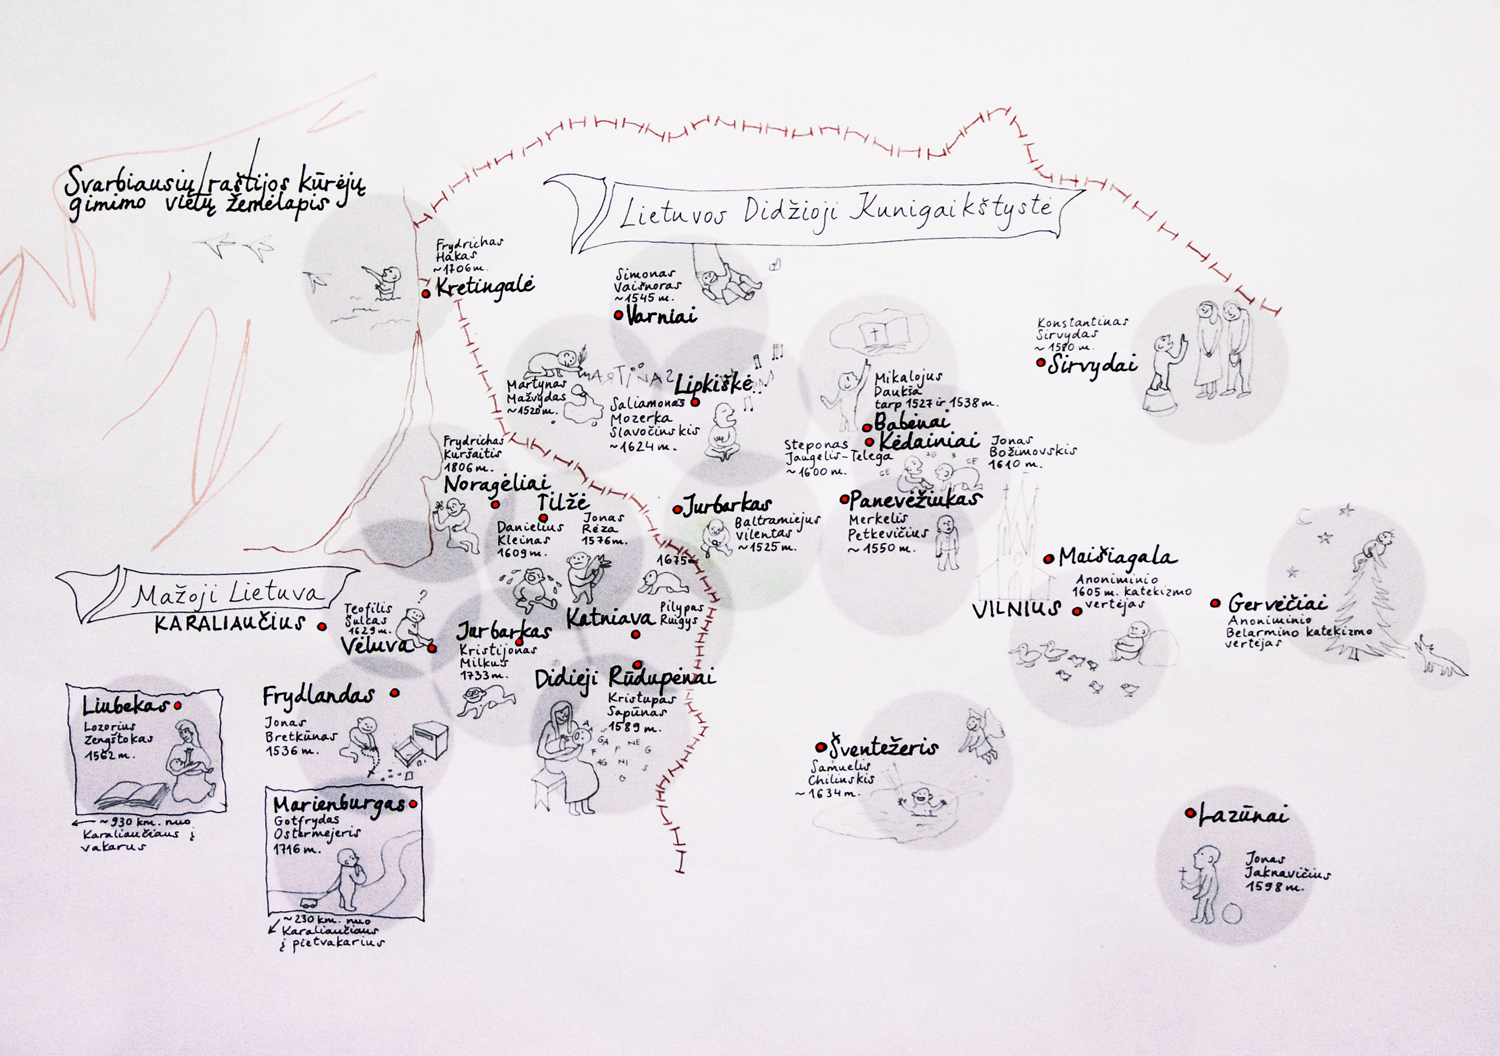 Svarbiausių raštijos kūrėjų
gimimo vietų žemėlapis
Lietuvos Didžioji Kunigaikštystė
Frydrichas
Hakas
~1706 m.
Kretingalė
Simonas
Vaišnoras
~1545 m.
Varniai
Konstantinas
Sirvydas
~1580 m.
Sirvydai
Martynas
Mažvydas
~1520 m.
MARTINAS
Lipkiškė
Saliamonas
Mozerka
Slavočinskis
~1624 m.
Mikalojus
Daukša
tarp 1527 ir 1538 m.
Babėnai
Kėdainiai
Steponas
Jaugelis-Telega
~1600 m.
Jonas
Božimovskis
1610 m.
Frydrichas
Kuršaitis
1806 m.
Noragėliai
Tilžė
Danielius
Kleinas
1609 m.
Jonas
Rėza
1576 m.
Jurbarkas
Baltramiejus
Vilentas
~1525 m.
Panevėžiukas
Merkelis
Petkevičius
~1550 m.
Maišiagala
Anoniminio
1605 m. katekizmo
vertėjas
VILNIUS
Gervėčiai
Anoniminio
Belarmino katekizmo
vertėjas
Mažoji Lietuva
KARALIAUČIUS
Teofilis
Šulcas
1629 m.
Vėluva
?
1675
Pilypas
Ruigys
Katniava
Jurbarkas
Kristijonas
Milkus
1733 m.
Didieji Rūdupėnai
Kristupas
Sapūnas
1589 m.
Liubekas
Lozorius
Zengštokas
1562 m.
~930 km. nuo
Karaliaučiaus į
vakarus
Frydlandas
Jonas
Bretkūnas
1536 m.
Marienburgas
Gotfrydas
Ostermejeris
1716 m.
~230 km. nuo
Karaliaučiaus
į pietvakarius
Šventežeris
Samuelis
Chilinskis
~1634 m.
Lazūnai
Jonas
Jaknavičius
1598 m.